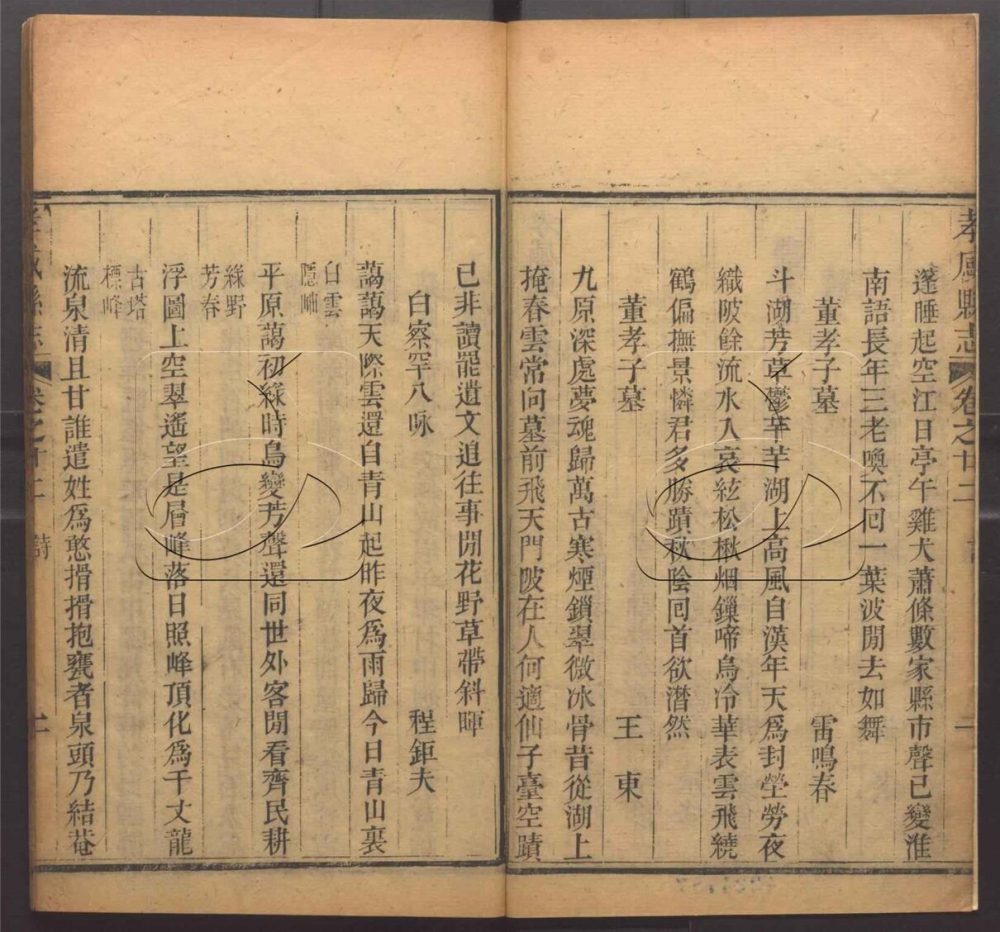 孝感縣志 卷之廿二 詩 一
篷睡起空江日亭午雞犬蕭條數家縣市聲已變淮
南語長年三老喚不囘一葉波閒去如舞
董孝子墓 雷鳴春
斗湖芳草鬱芊芊湖上高風自漢年天爲封塋勞夜
織陂餘流水入哀絃松楸烟鏁啼烏冷華表雲飛繞
鶴偏撫景憐君多勝蹟秋陰囘首欲潸然
董孝子墓 王東
九原深處夢魂歸萬古寒煙鎖翠微冰骨昔從湖上
掩春雲常向墓前飛天門陂在人何適仙子臺空蹟
已非讀罷遺文追往事閒花野草帶斜暉
白察罕八咏 程鉅夫
藹藹天際雲還自青山起昨夜爲雨歸今日青山裏
白雲
隱岫
平原藹初綠時鳥變芳聲還同世外客閒看齊民耕
綠野
芳春
浮圖上空翠遙望是層峰落日照峰頂化爲千丈龍
古塔
標峰
流泉清且甘誰遣姓爲憨搰搰抱甕者泉頭乃結菴
孝感縣志 卷之廿二 詩 二